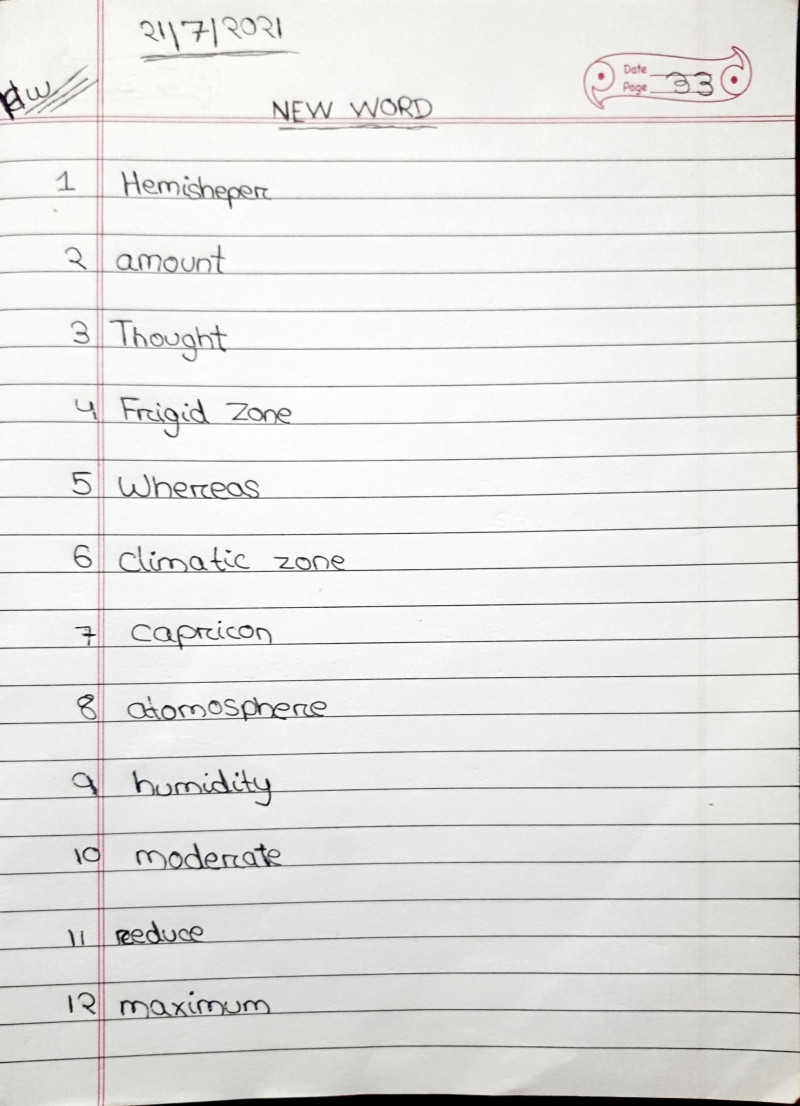 21/7/2021
HW
Date
Page 33
NEW WORD
1 Hemisheper
2 amount
3 Thought
4 Frigid zone
5 Whereas
6 climatic zone
7 capricon
8 atomosphere
9 humidity
10 moderate
11 reduce
12 maximum